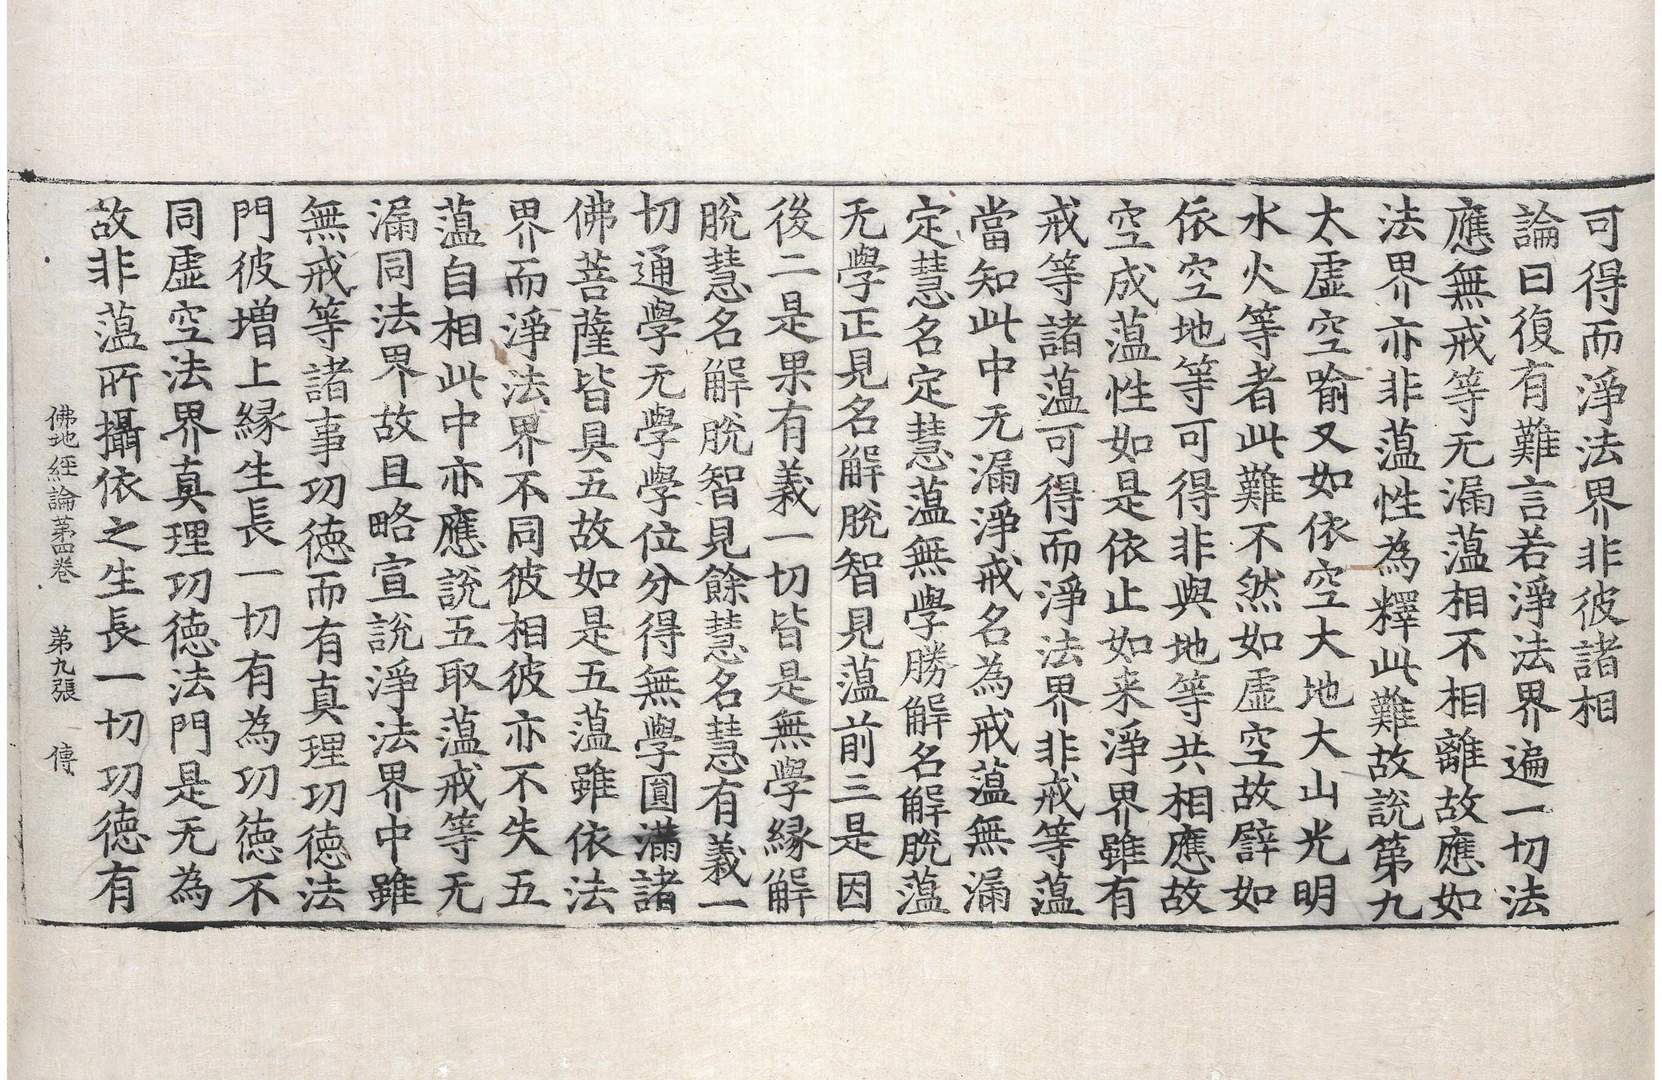 可得而淨法界非彼諸相
論曰復有難言若淨法界遍一切法
應無戒等无漏薀相不相離故應如
法界亦非薀性為釋此難故說第九
太虛空喻又如依空大地大山光明
水火等者此難不然如虛空故譬如
依空地等可得非與地等共相應故
空成薀性如是依止如来淨界雖有
戒等諸薀可得而淨法界非戒等薀
當知此中无漏淨戒名為戒薀無漏
定慧名定慧薀無學勝解名解脫薀
无學正見名解脫智見薀前三是因
後二是果有義一切皆是無學緣解
脫慧名解脫智見餘慧名慧有義一
切通學无學學位分得無學圓滿諸
佛菩薩皆具五故如是五薀雖依法
界而淨法界不同彼相彼亦不失五
薀自相此中亦應說五取薀戒等无
漏同法界故且略宣說淨法界中雖
無戒等諸事功徳而有真理功徳法
門彼增上緣生長一切有為功徳不
同虛空法界真理功徳法門是无為
故非薀所攝依之生長一切功徳有
佛地經論第四卷　第九張　傳